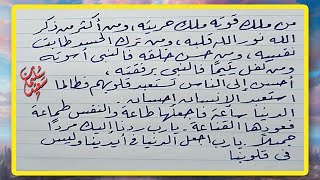 من ملك قوته ملك حريته ، ومن أكثر من ذكر
الله نور الله قلبه ، ومن ترك الحسد طابت
نفسه ، ومن حسن خلقه فالنبي أسوته
ومن كفل يتيمًا فالنبي رفقته ،
أحسن إلى الناس تستعبد قلوبهم فطالما
استعبد الإنسان إحسان .
الدنيا ساعة فاجعلها طاعة والنفس طماعة
فعودها القناعة . يارب ردنا إليك مردا
جميلاً . يارب اجعل الدنيا في أيدينا وليس
في قلوبنا